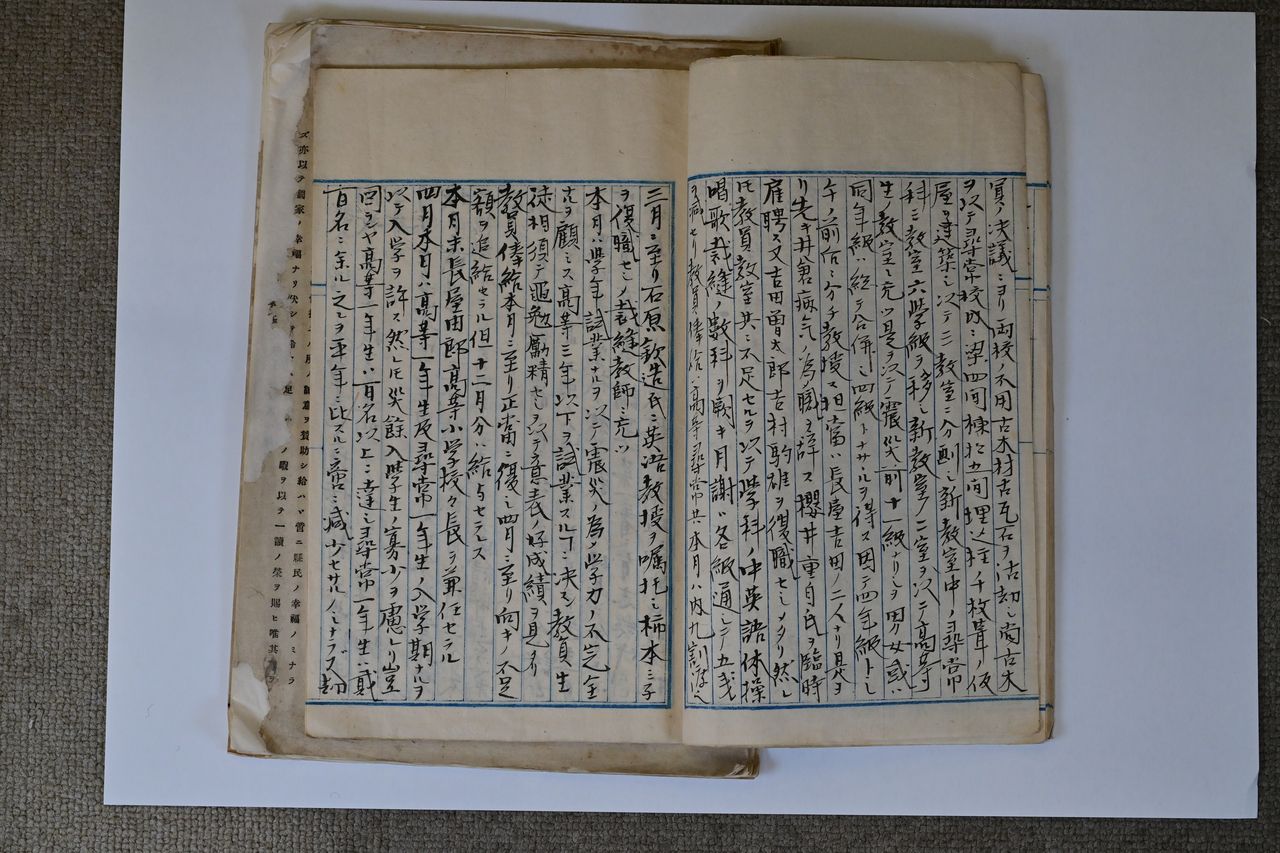 員ノ決議ニヨリ両校ノ不用古木材古瓦石ヲ沽却シ尚古木
ヲ以テ尋常校内ニ梁四間棟拾カ間埋込柱千枚葺ノ仮
屋ヲ建築シ以テ二教室ニ分劃シ新教室中ノ尋常
科三教室六学級ヲ移シ新教室ノ二室ヲ以テ高等
生ノ教室ニ充ツ是ヲ以テ震災前十一級ナリシヲ男女或ハ
同年級ハ総テ合併シ四級トナサルヲ得ス因テ四年級トシ
午ノ前后ニ分チ教授ス担当ハ長屋吉田ノ二人ナリ是ヨ
リ先キ井倉病気ノ為職ヲ辞ス櫻井重自氏ヲ臨時
雇聘ス又吉田曽太郎吉村駒雄ヲ復職セシメタリ然レ
氏教員教室共ニ不足セルヲ以テ学科ノ中英語体操
唱歌裁縫ノ数科ヲ闕キ月謝ハ各級通シテ五戋
ヲ減セリ教員俸給ハ高等尋常共ニ本月ハ内九割渡ス
三月ニ至リ石原欽造氏ニ英語教授ヲ嘱托シ柿本ミ子
ヲ復職セシメ裁縫教師ニ充ツ
本月ハ学年試業ナルヲ以テ震災ノ為メ学力ノ不完全
ナルヲ顧ミス高等三年以下ヲ試業スル丁ニ決ス教員生
徒相須テ黽勉勵精セシヲ以テ意表ノ好成績ヲ見タリ
教員俸給本月ニ至リ正當ニ復シ四月ニ至リ向キノ不足
額ヲ追給セラル但十二月分ハ給与セラス
本月末長屋由郎高等小学校々長ヲ兼任セラル
四月本月ハ高等一年生及尋常一年生ノ入学期ナルヲ
以テ入学ヲ許ス然レ氏災餘入学生ノ寡少ヲ慮レリ豈
図ランヤ高等一年生ハ百名以上ニ達シ尋常一年生ハ貳
百名ニ余ル之ヲ平年ニ比スルニ啻ニ減少セサルノミナラズ却
ズ亦以テ國家ノ幸福ナリ
ヲ賛助シ給ハヾ啻ニ縣民ノ幸福ノミナラ
ノ暇ヲ以テ一讀ノ榮ヲ賜ヒ